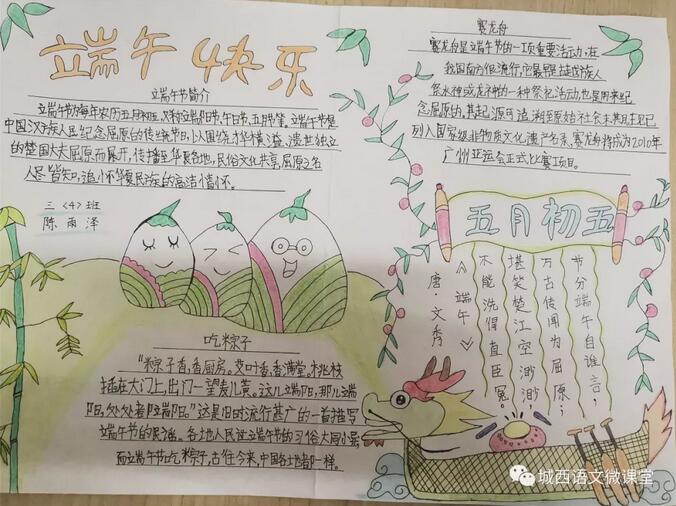 端午快乐
端午节简介
端午节为每年农历五月初五，又称端阳节、午日节、五月节等。端午节是
中国汉族人民纪念屈原的传统节日，以围绕才华横溢、遗世独立
的楚国大夫屈原而展开，传播至华夏各地，民俗文化共享，屈原之名
人尽皆知，追怀华夏民族的高洁情怀。
三〈4〉班
陈雨泽
吃粽子
“粽子香，香厨房。艾叶香，香满堂。桃枝
插在大门上，出门一望麦儿黄。这儿端阳，那儿端
阳，处处都端阳。”这是旧时流行甚广的一首描写
端午节的民谣。各地人民过端午节的习俗大同小异
而端午节吃粽子，古往今来，中国各地都一样。
赛龙舟
赛龙舟是端午节的一项重要活动，在
我国南方很流行，它最早是
祭水神或龙神的一种祭祀活动也是用来纪
念屈原的，其起源可追溯至原始社会末其
列入国家级非物质文化遗产名录，赛龙舟将成为2010年
广州亚运会正式比赛项目。
五月初五
节分端午自谁言，
万古传闻为屈原；
堪笑楚江空渺渺
不能洗得直臣冤。
《端午》
唐·文秀
城西语文微课堂